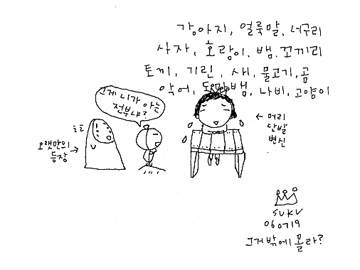 강아지, 얼룩말, 너구리
사자, 호랑이, 뱀, 꼬끼리
토끼, 기린, 새, 물고기, 곰
악어, 도마뱀, 나비, 고양이
그게 니가 아는
전부냐?
호호
오랫만의
등장
←머리
단발
변신
SUKV
060719
그거밖에 몰라?